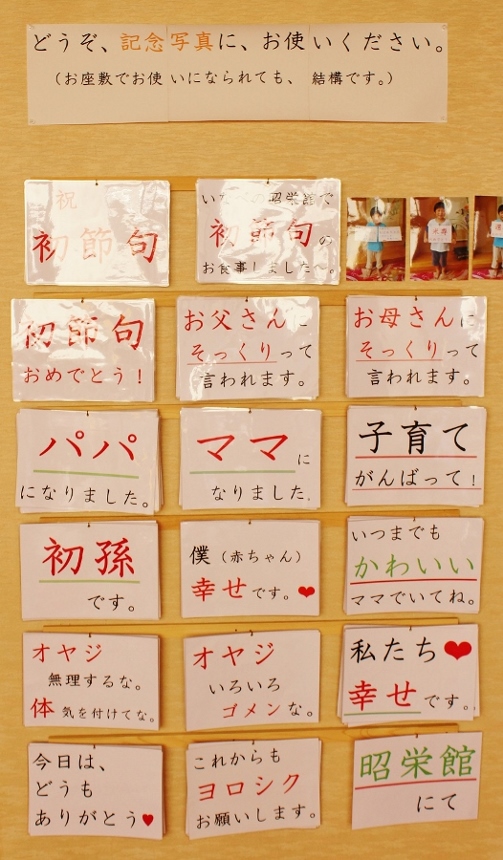 どうぞ、記念写真に、お使いください。
(お座敷でお使いになられても、結構です。)
祝
初節句
昭栄館で
初節句の
お食事しました〜。
初節句
おめでとう!
お父さんに
そっくりって
言われます。
お母さんに
そっくりって
言われます。
パパ
になりました。
ママに
なりました.
子育て
がんばって!
初孫
です。
僕(赤ちゃん)
幸せです。❤
いつまでも
かわいい
ママでいてね。
オヤジ
無理するな。
体気を付けてな。
オヤジ
いろいろ
ゴメンな。
私たち❤
幸せです。
今日は、
どうも
ありがとう♥
これからも
ヨロシク
お願いします。
昭栄館
にて